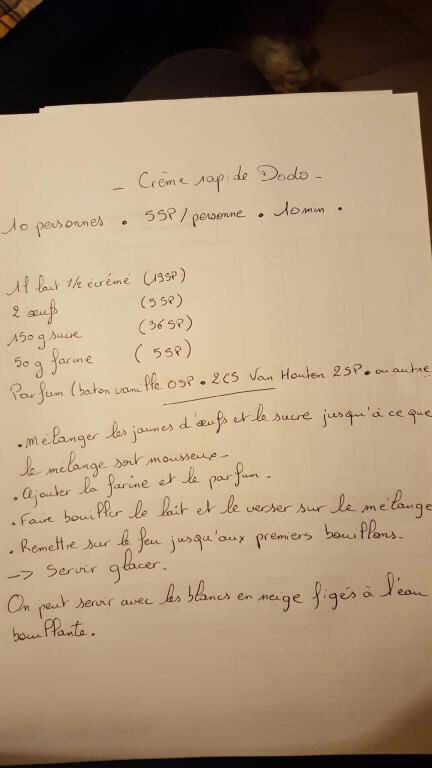 - Crème rapide Dodo -
10 personnes . 5SP/personne . 10min .
1l lait 1/2 écrémé (19SP)
2 œufs (5SP)
150g sucre (36SP)
50g farine (5SP)
Parfum (baton vanille 0SP . 2CS Van Houten 2SP . ou autre
. Mélanger les jaunes d'œufs et le sucre jusqu'à ce que
le mélange soit mousseux -
. Ajouter la farine et le parfum -
. Faire bouillir le lait et le verser sur le mélange
. Remettre sur le feu jusqu'aux premiers bouillons.
-> Servir glacer.
On peut servir avec les blancs en neige figés à l'eau
bouillante.